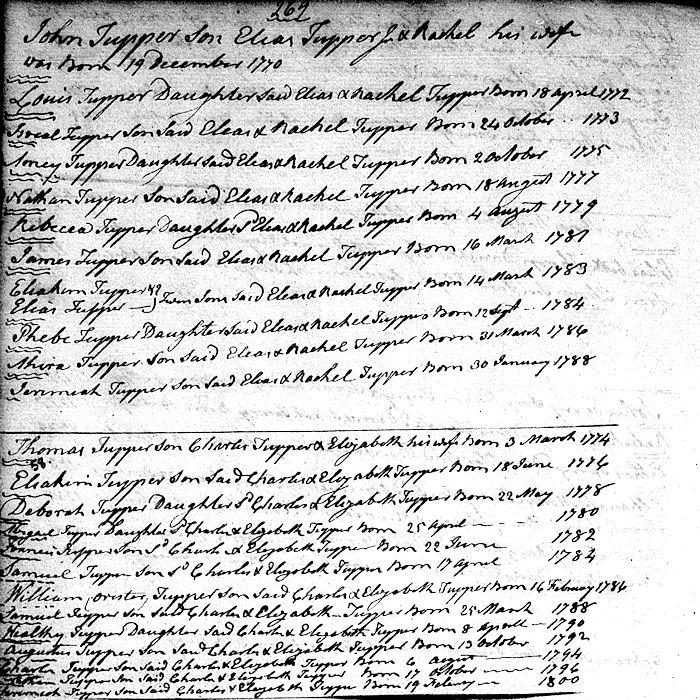 269
John Tupper Son Elias Tupper Jr & Rachel his wife
was Born 19 December 1770
Louis Tupper Daughter Said Elias & Rachel Tupper Born 18 april 1772
Tupper Son Said Elias & Rachel Tupper Born 24 October 1773
Tupper Daughter Said Elias & Rachel Tupper Born 2 October 1775
Nathan Tupper Son Said Elias & Rachel Tupper Born 18 august 1777
Rebecca Tupper Daughter Sd Elias & Rachel Tupper Born 4 august 1779
James Tupper Son Said Elias & Rachel Tupper Born 16 March 1781
Eliakim Tupper &
Elias Tupper } Twin Sons Said Elias & Rachel Tupper Born 14 March 1783
Phebe Tupper Daughter Said Elias & Rachel Tupper Born 12 Sept 1784
Tupper Son Said Elias & Rachel Tupper Born 31 March 1786
Jeremiah Tupper Son Said Elias & Rachel Tupper Born 30 January 1788
Thomas Tupper Son Charles Tupper & Elizabeth his wife Born 3 March 1774
Eliakim Tupper Son Said Charles & Elizabeth Tupper Born 18 June 1776
Deborah Tupper Daughter Sd Charles & Elizabeth Tupper Born 22 May 1778
Tupper Daughter Sd Charles & Elizabeth Tupper Born 25 april 1780
Francis Tupper Son Sd Charles & Elizabeth Tupper Born 22 June 1782
Samuel Tupper Son Sd Charles & Elizabeth Tupper Born 17 april 1784
William Tupper Son Said Charles & Elizabeth Tupper Born 16 February 1786
Samuel Tupper Son Said Charles & Elizabeth Tupper Born 25 March 1788
Healthy Tupper Daughter Said Charles & Elizabeth Tupper Born 8 aprill 1790
Augustus Tupper Son Said Charles & Elizabeth Tupper Born 13 October 1792
Charles Tupper Son Said Charles & Elizabeth Tupper Born 6 august 1794
Nathan Tupper Son Said Charles & Elizabeth Tupper Born 17 October 1796
Jeremiah Tupper Son Said Charles & Elizabeth Tupper Born 19 February 1800